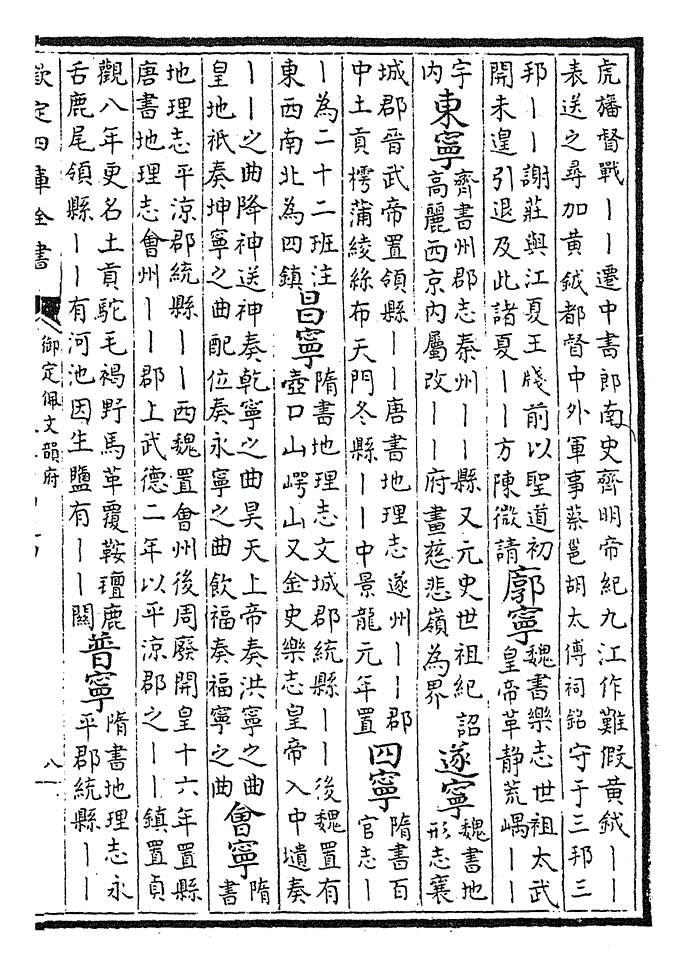 虎旛督戰丨丨遷中書郎南史齊明帝紀九江作難假黃鉞丨丨
表送之尋加黃鉞都督中外軍事蔡邕胡太傅祠銘守于三邦三
邦丨丨謝莊與江夏王牋前以聖道初
開未遑引退及此諸夏丨丨方陳微請
廓寧
魏書樂志世祖太武
皇帝革静荒嵎丨丨
宇
内
東寧
齊書州郡志秦州丨丨縣又元史世祖紀詔
高麗西京内屬改丨丨府畫慈悲嶺為界
遂寧
魏書地
形志襄
城郡晉武帝置領縣丨丨唐書地理志遂州丨丨郡
中土貢樗蒲綾絲布天門冬縣丨丨中景龍元年置
四寧
隋書百
官志丨
丨為二十二班注
東西南北為四鎮
昌寧
隋書地理志文城郡統縣丨丨後魏置有
壺口山崿山又金史樂志皇帝入中壝奏
丨丨之曲降神送神奏乾寧之曲昊天上帝奏洪寧之曲
皇地祇奏坤寧之曲配位奏永寧之曲飲福奏福寧之曲
會寧
隋
書
地理志平涼郡統縣丨丨西魏置會州後周廢開皇十六年置縣
唐書地理志會州丨丨郡上武德二年以平涼郡之丨丨鎮置貞
觀八年更名土貢駝毛褐野馬革覆鞍氊鹿
舌鹿尾領縣丨丨有河池因生鹽有丨丨關
普寧
隋書地理志永
平郡統縣丨丨
欽定四庫全書
御定佩文韻府
八